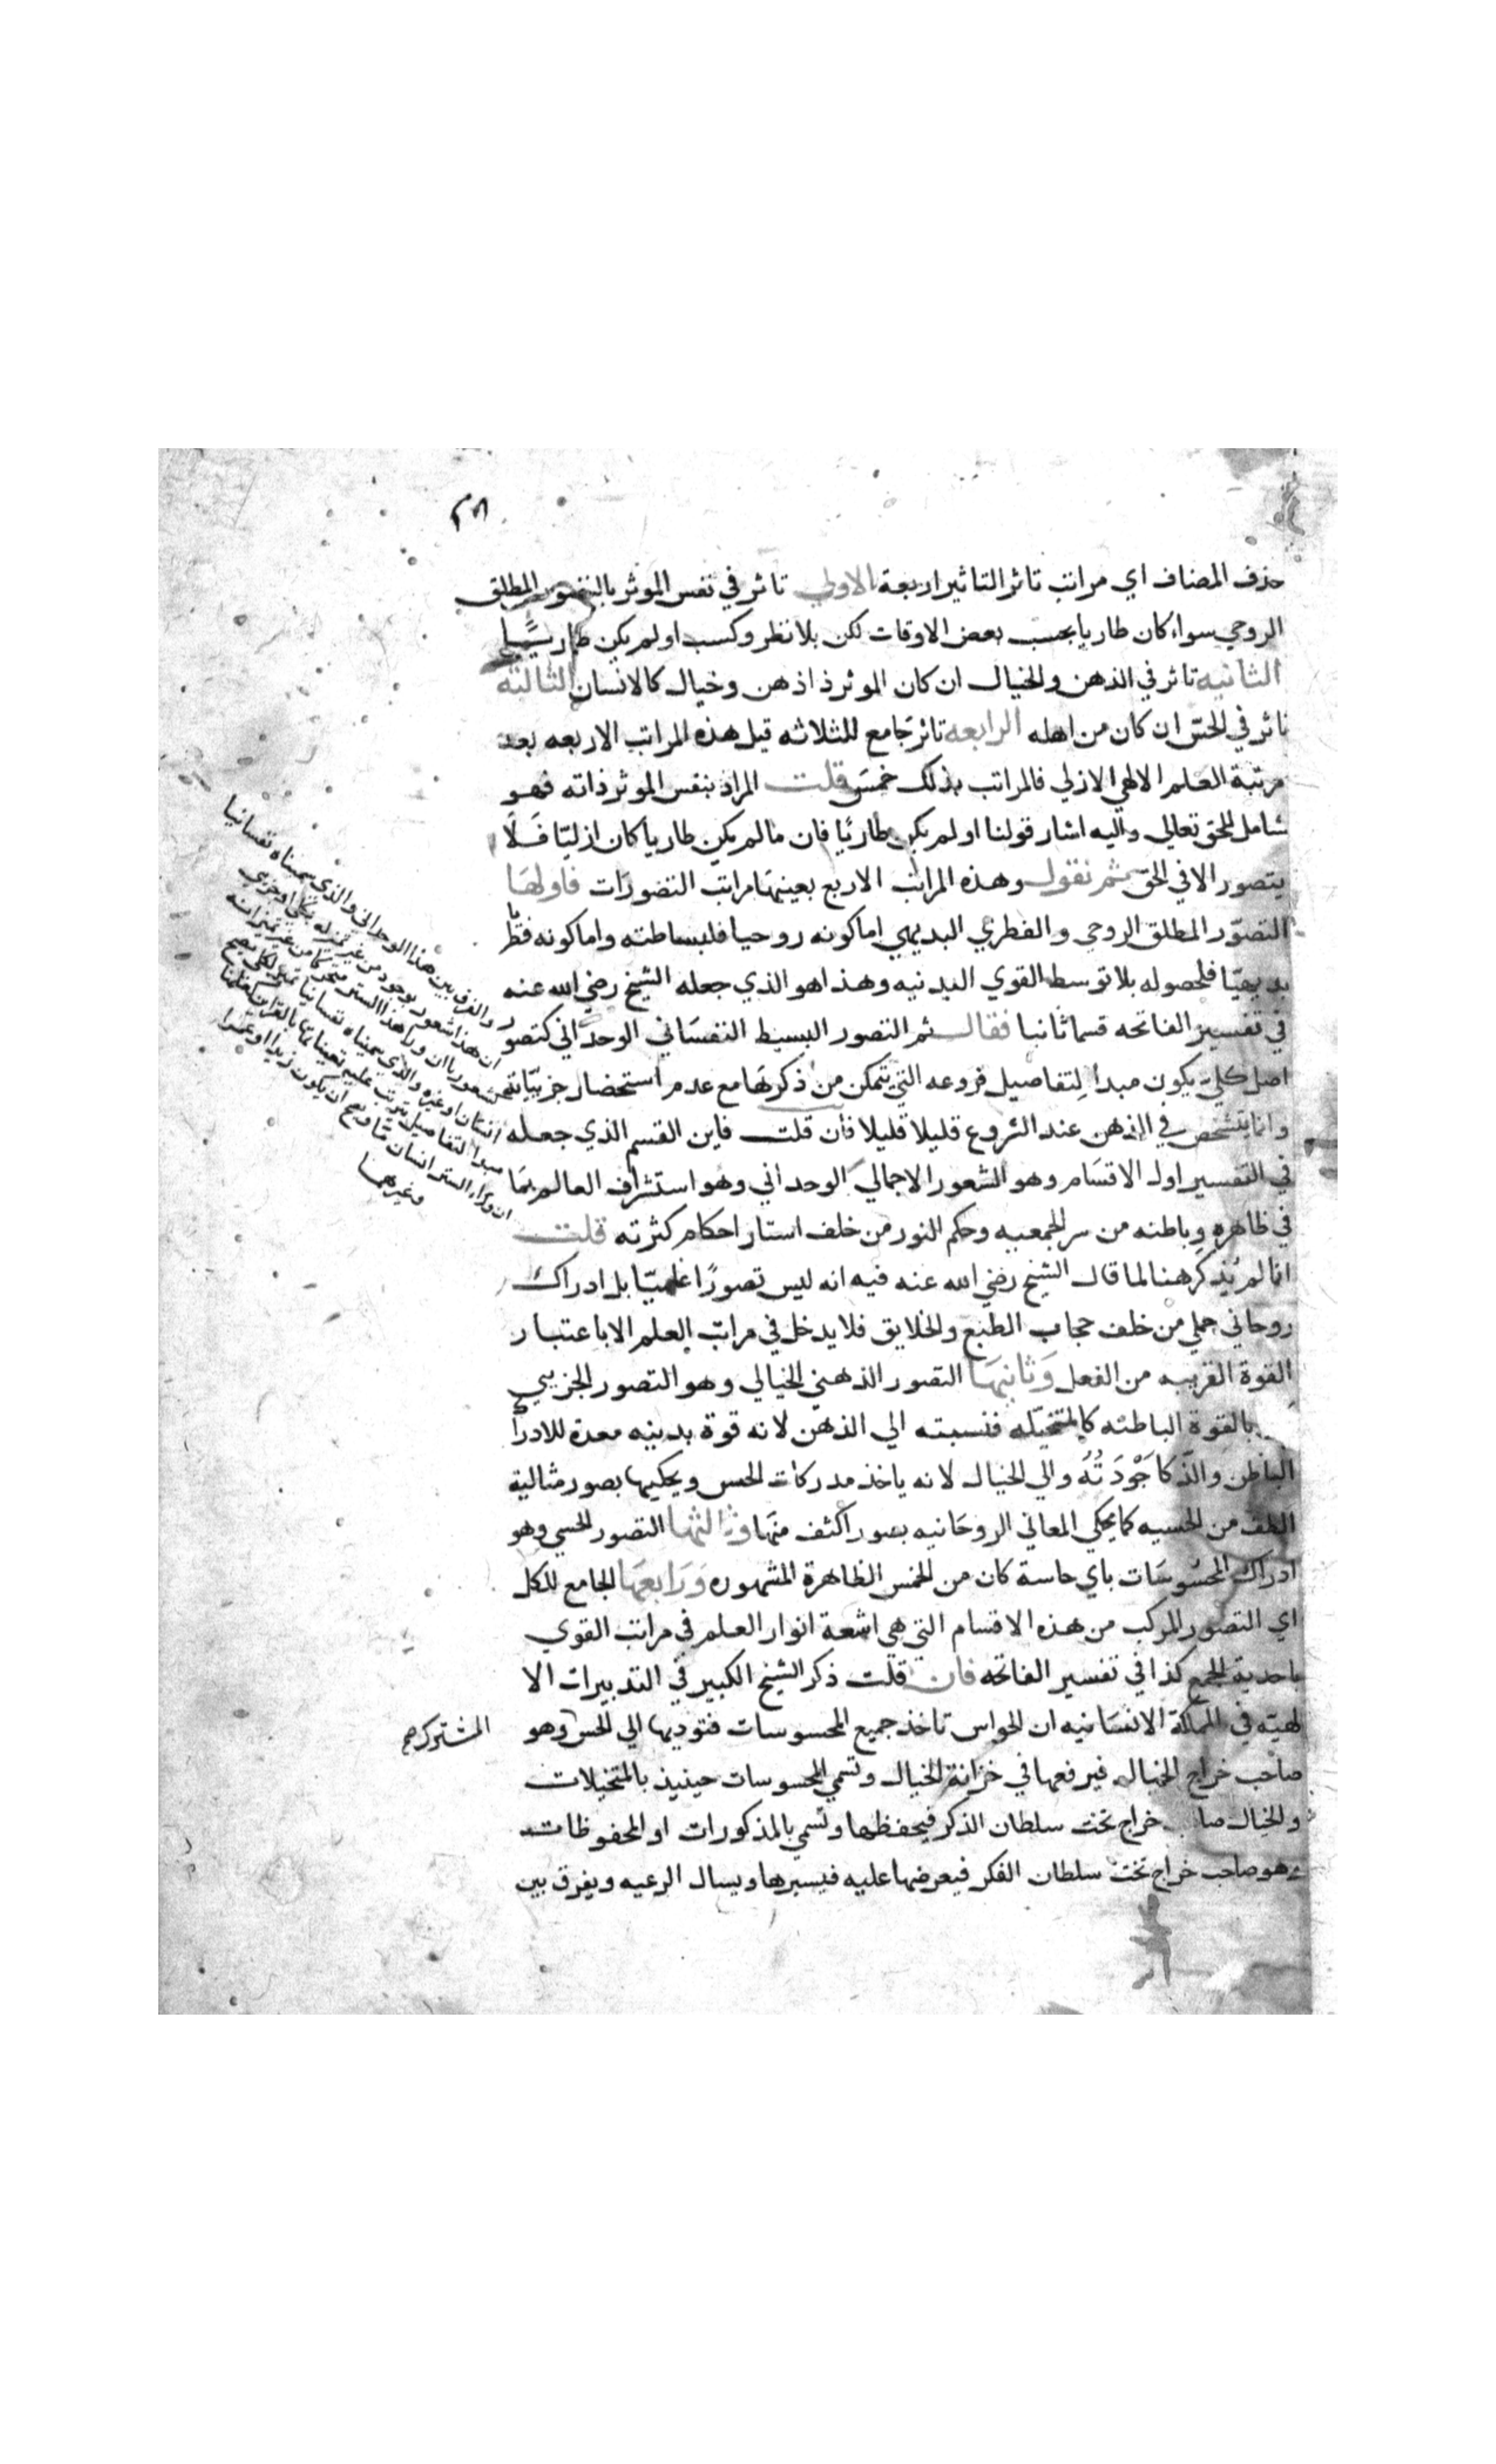 حذف المضاف اي مراتب تاثر التاثير اربعة الاولي تاثر في نفس الموثر بالتصور المطلق
الروحي سواء كان طاريا بحسب بعض الاوقات لكن بلا نظر وكسب او لم يكن طاريًا
الثانيه تاثر في الذهن والخيال ان كان الموثر ذا ذهن وخيال كالانسان الثالثه
تاثر في الحسّ ان كان من اهله الرابعه تاثر جامع للثلاثه قيل هذه المراتب الاربعه بعد
مرتبة العلم الالهي الازلي فالمراتب بذلك خمسَ قلت المراد بنفس الموثر ذاته فهو
شامل للحق تعالي واليه اشار قولنا او لم يكن طاريًا فان ما لم يكن طاريا كان ازليّا فَلَا
يتصور الا في الحق ثم نقول وهذه المراتب الاربع بعينها مراتب التصورات فاولهَا
التصوّر المطلق الروحي والفطري البديهي اما كونه روحيا فلبساطته واما كونه فطرّيا
بديهيّا فلحصوله بلا توسط القوي البدنيه وهذا هو الذي جعله الشيخ رضي الله عنه
في تفسير الفاتحه قسما ثانيا فقال ثم التصور البسيط النفسَاني الوحداني كتصور
اصل كليّ يكون مبدأ لتفاصيل فروعه التي يتمكن من ذكرها مع عدم استحضار جزييّاته
وانما يتشخص في الذهن عند الشروع قليلا قليلا فان قلت فاين القسم الذي جعله
في التفسير اول الاقسَام وهو الشعور الاجمالي الوحداني وهو استشراف العالم بمَا
في ظاهره وباطنه من سر الجمعيه وحكم النور من خلف استار احكام كثرته قلت
انما لم يُذكر هنا لما قال الشيخ رضي الله عنه فيه انه ليس تصورًا علميّا بل ادراك
روحاني جملي من خلف حجاب الطبع والخلايق فلا يدخل في مراتب العلم الا باعتبار
القوة القريبه من الفعل وَثانيهَا التصور الذهني الخيالي وهو التصور الجزيي
بالقوة الباطنه كالمتخيّله فنسبته الي الذهن لانه قوة بدنيه معدة للادراك
الباطن والذّكا جَوْدَتُهُ والي الخيال لانه ياخذ مدركات الحس ويحكيها بصور مثالية
الطف من الحسيه كما يحكي المعاني الروحَانيه بصور اكثف منهَا وثالثها التصور الحسي وهو
ادراك المحسُوسَات باي حاسة كان من الخمس الظاهرة المشهوره وَرَابعهَا الجامع للكل
اي التصور المركب من هذه الاقسام التي هي اشعة انوار العلم في مراتب القوي
باحدية الجمع كذا في تفسير الفاتحه فان قلت ذكر الشيخ الكبير في التدبيرات الا
لهيّه في المملكة الانسَانيه ان الحواس تاخذ جميع المحسوسات فتوديها الي الحس وهو
المشترك صح
صاحب خراج الخيال فيرفعها في خزانة الخيال وتسمي المحسوسات حينيذ بالمتخيلات
والخيال صاحب خراج تحت سلطان الذكر فيحفظها وتسمي بالمذكورات او المحفوظات
وهو صاحب خراج تحت سلطان الفكر فيعرضها عليه فيسبرها ويسال الرعيه ويفرق بين
والفرق بين هذا الوحداني والذي سميناه نفسانيا
ان هذا شعور بوجود من غير تميزله بكلي او جزيي
كشعورنا ان وراء هذا الستر متحركا من غير تميز انه
انسان او غيره والذي سميناه نفسانيا
مبدا لتفاصيل يترتب عليه
ان وراء الستر انسان مّا ويصح ان يكون زيدا او عمرا
وغيرهما